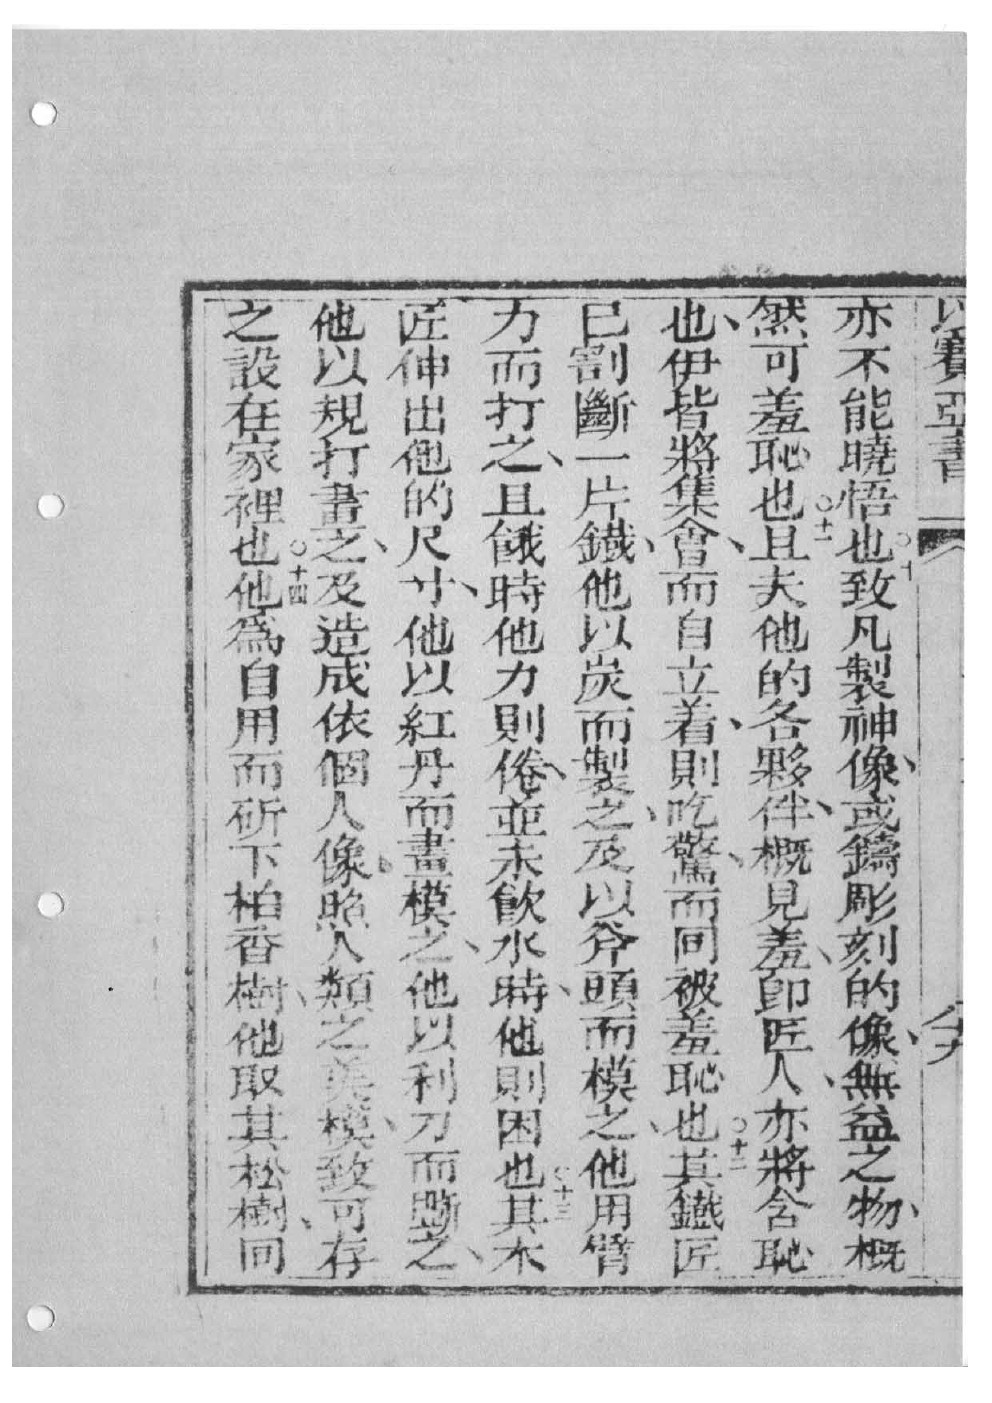 以賽亞書 八十九
亦不能曉悟也○十致凡製神像、或鑄彫刻的像、無益之物、概
然可羞恥也○十一且夫他的各夥伴、概見羞、卽匠人、亦將含恥
也、伊皆將集會、而自立着、則吃驚、而同被羞恥也○十二其鐵匠
已割斷一片鐵、他以炭而製之、及以斧頭而模之、他用臂
力而打之、且餓時他力則倦、並未飮水時、他則困也○十三其木
匠伸出他的尺寸、他以紅丹而畫模之、他以利刀而斷之、
他以規打畫之、及造成依個人像、照人類之美模、致可存
之設在家裡也○十四他爲自用而斫下柏香樹、他取其松樹、同